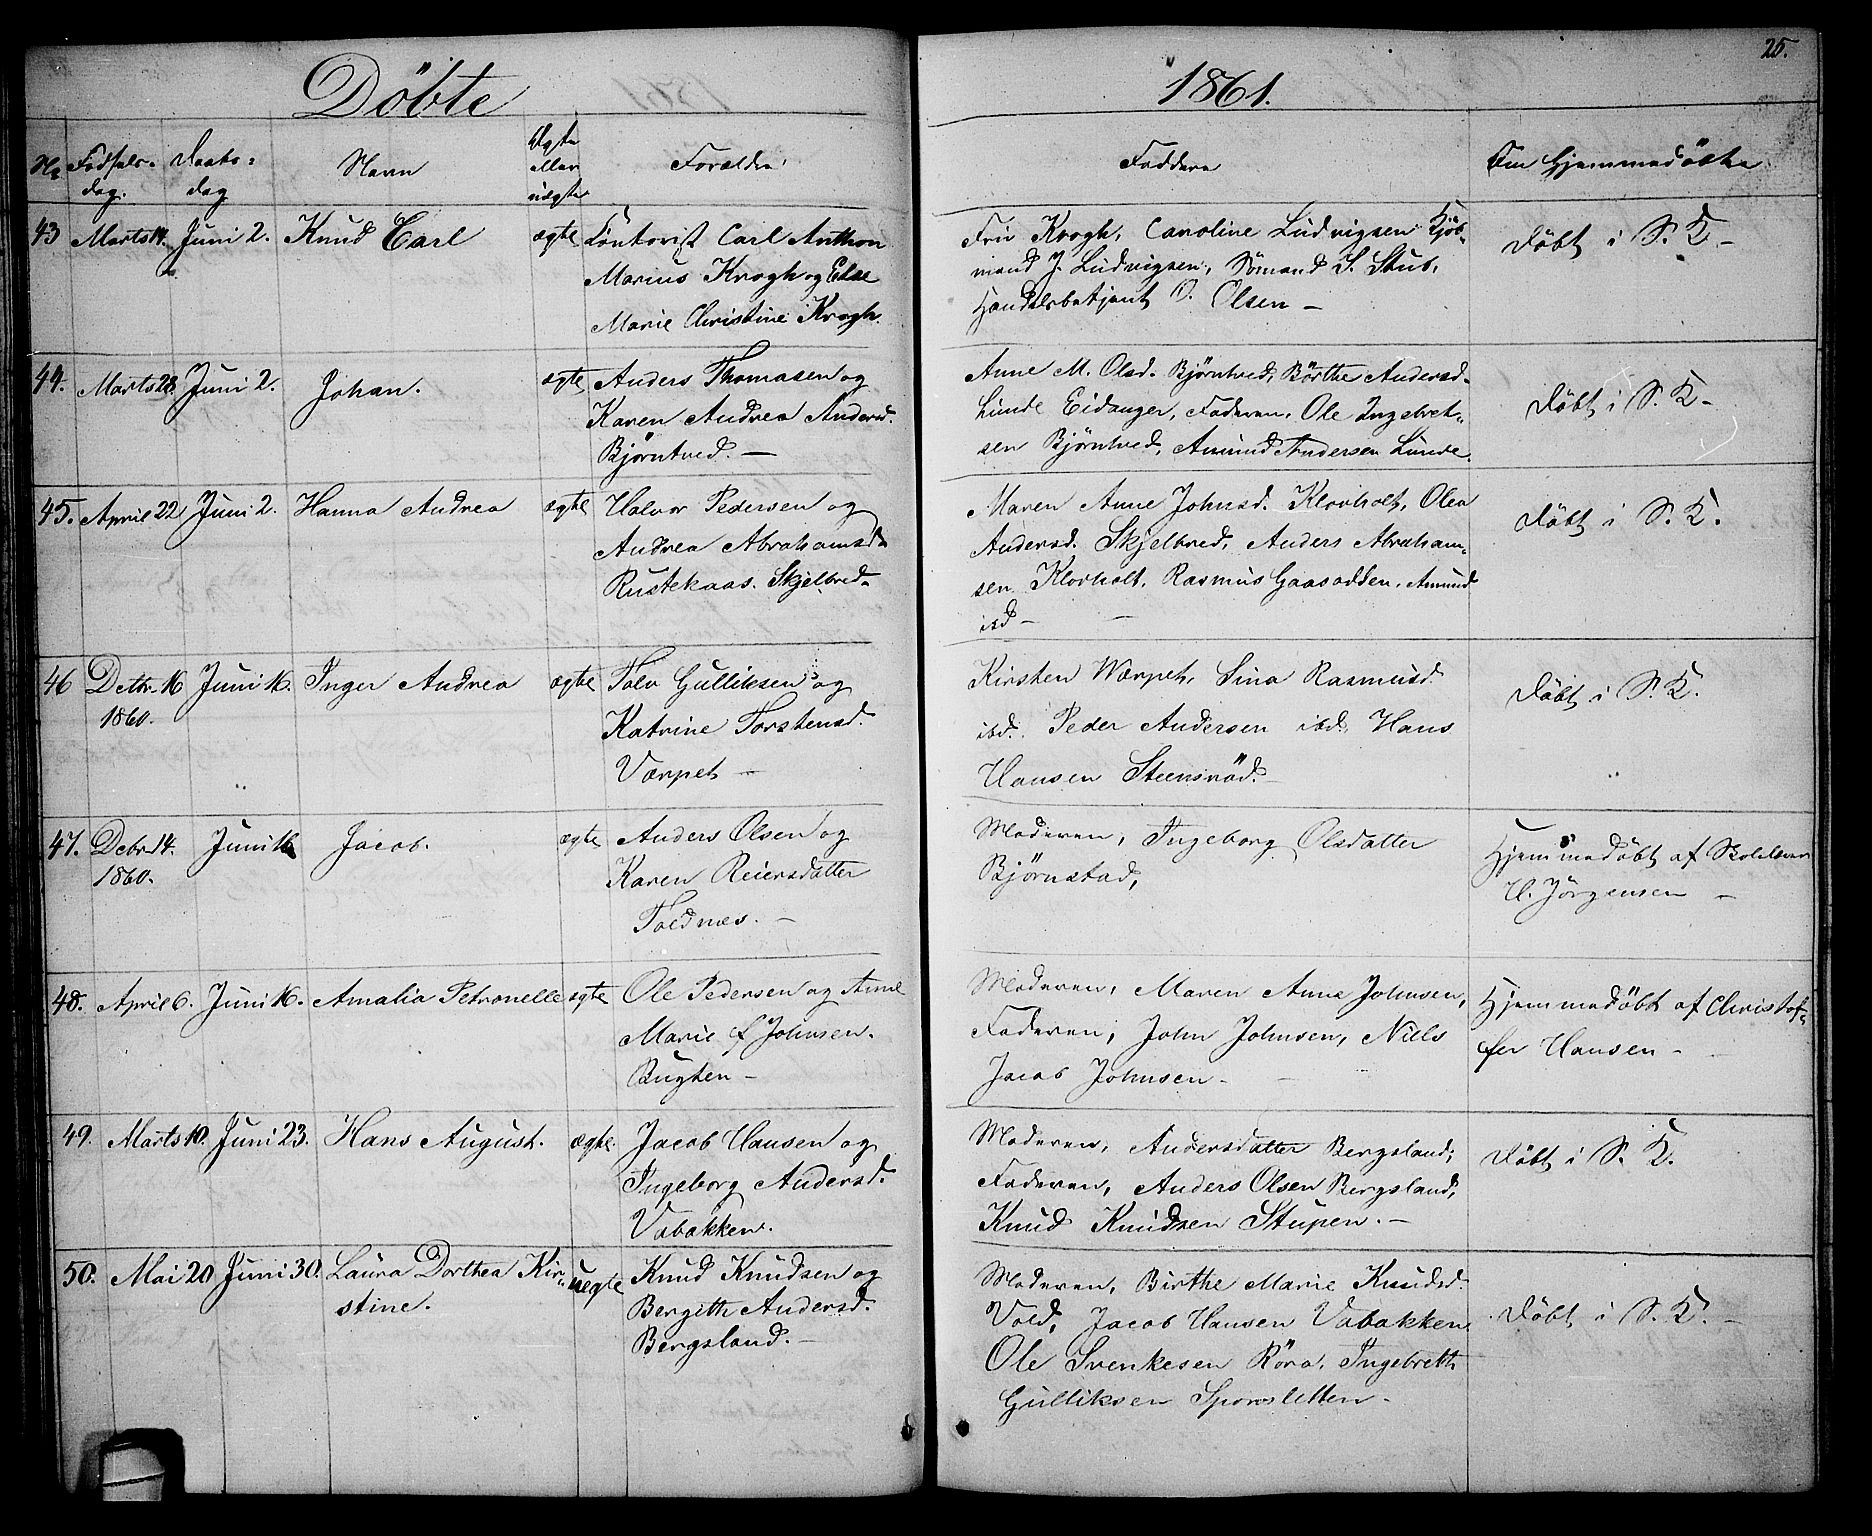 25.
Döbte 1861.
No Födsels- dag. Daabs- dag Navn Ægte eller uægte Forældre Faddere Om Hjemmedöbte
43 Marts 14. Juni 2. Knud Carl ægte Contorist Carl Anthon
Marius Krogh og Else
Marie Christine Krogh.
Fru Krogh, Caroline Ludvigsen Kjöb-
mand J. Ludvigsen, Sömand S. Stub,
Handelsbetjent O. Olsen –
Döbt i S. K –
44. Marts 28. Juni 2. Johan. ægte Anders Thomasen og
Karen Andrea Andersd.
Björntved. –
Anne M. Olsd. Björntved, Börthe Andersd.
Lunde Eidanger, Faderen, Ole Ingebret-
sen Björntved, Amund Andersen Lunde.
Döbt i S. K –
45. April 22 Juni 2. Hanna Andrea ægte Halvor Pedersen og
Andrea Abrahamsd.
Rustekaas. Skjelbred.
Maren Anne Johnsd. Klovholt, Olea
Andersd. Skjelbred, Anders Abraham-
sen Klovholt, Rasmus Gaasodden, Amund
ibd –
Döbt i S. K.
46 Decbr. 16 1860. Juni 16. Inger Andrea ægte Tolv Gulliksen og
Katrine Torstensd.
Værpet –
Kirsten Værpet, Sina Rasmusd.
ibd. Peder Andersen ibd. Hans
Hansen Steensröd. –
Döbt i S. K.
47. Debr. 14. 1860. Juni 16 Jacob. ægte Anders Olsen og
Karen Reiersdatter
Toldnæs. –
Moderen, Ingeborg Olsdatter
Björnstad,
Hjemmedöbt af
H. Jörgensen –
48. April 6. Juni 16. Amalia Petronelle ægte Ole Pedersen og Anne
Marie f Johnsen.
Bugten –
Moderen, Maren Anne Johnsen,
Faderen, John Johnsen, Niels
Jacob Johnsen –
Hjemmedöbt af Christof-
fer Hansen –
49. Marts 10. Juni 23. Hans August. ægte. Jacob Hansen og
Ingeborg Andersd.
Vabakken.
Moderen, Andersdatter Bergsland,
Faderen, Anders Olsen Bergsland,
Knud Knudsen Stupen. –
Döbt i S. K.
50. Mai 20 Juni 30. Laura Dorthea Kir-
stine. uægte Knud Knudsen og
Bergitte Andersd.
Bergsland. –
Moderen, Birthe Marie Knudsd.
Vold, Jacob Hansen Vabakken
Ole Svenkesen Röra, Ingebrett
Gulliksen Sporsletten –
Döbt i S. K. –